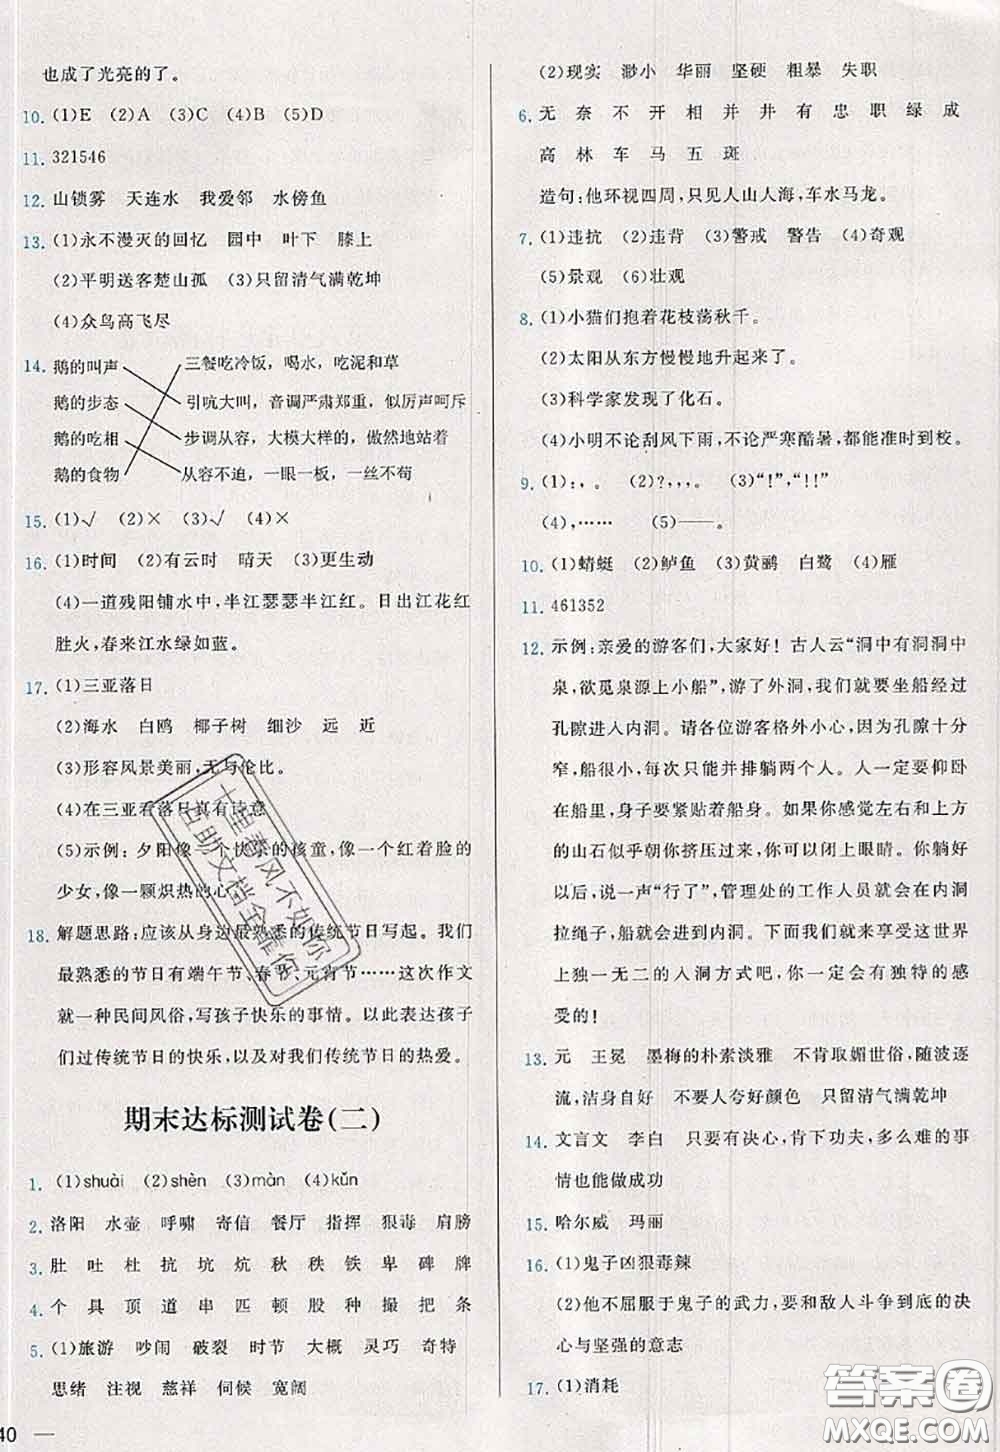 也成了光亮的了。
10. (1)E (2)A (3)C (4)B (5)D
11. 321546
12. 山锁雾 天连水 我爱邻 水傍鱼
13. (1)永不漫灭的回忆 园中 叶下 膝上
(2)平明送客楚山孤 (3)只留清气满乾坤
(4)众鸟高飞尽
14. 鹅的叫声 三餐吃冷饭，喝水，吃泥和草
鹅的步态 引吭大叫，音调严肃郑重，似厉声呵斥
鹅的吃相 步调从容，大模大样的，傲然地站着
鹅的食物 从容不迫，一眼一板，一丝不苟
15. (1)√ (2)× (3)√ (4)×
16. (1)时间 (2)有云时 晴天 (3)更生动
(4)一道残阳铺水中，半江瑟瑟半江红。日出江花红
胜火，春来江水绿如蓝。
17. (1)三亚落日
(2)海水 白鸥 椰子树 细沙 远 近
(3)形容风景美丽，无与伦比。
(4)在三亚看落日真有诗意
(5)示例：夕阳像一个快乐的孩童，像一个红着脸的
少女，像一颗炽热的心
18. 解题思路：应该从身边最熟悉的传统节日写起。我们
最熟悉的节日有端午节、春节、元宵节……这次作文
就一种民间风俗，写孩子快乐的事情。以此表达孩子
们过传统节日的快乐，以及对我们传统节日的热爱。
期末达标测试卷(二)
1. (1)shuài (2)shèn (3)màn (4)kǔn
2. 洛阳 水壶 呼啸 寄信 餐厅 指挥 狠毒 肩膀
3. 肚 吐 杜 抗 坑 炕 秋 秩 铁 卑 碑 牌
4. 个 具 顶 道 串 匹 顿 股 种 撮 把 条
5. (1)旅游 吵闹 破裂 时节 大概 灵巧 奇特
思绪 注视 慈祥 伺候 宽阔
40
(2)现实 渺小 华丽 坚硬 粗暴 失职
6. 无 奈 不 开 相 并 井 有 忠 职 绿 成
高 林 车 马 五 斑
造句：他环视四周，只见人山人海，车水马龙。
7. (1)违抗 (2)违背 (3)警戒 警告 (4)奇观
(5)景观 (6)壮观
8. (1)小猫们抱着花枝荡秋千。
(2)太阳从东方慢慢地升起来了。
(3)科学家发现了化石。
(4)小明不论刮风下雨，不论严寒酷暑，都能准时到校。
9. (1)：，。 (2)？，，，。 (3)“！”，“！！”
(4)，…… (5)——。
10. (1)蜻蜓 (2)鲈鱼 (3)黄鹂 白鹭 (4)雁
11. 461352
12. 示例：亲爱的游客们，大家好！古人云“洞中有洞洞中
泉，欲觅泉源上小船”，游了外洞，我们就要坐船经过
孔隙进入内洞。请各位游客格外小心，因为孔隙十分
窄，船很小，每次只能并排躺两个人。人一定要仰卧
在船里，身子要紧贴着船身。如果你感觉左右和上方
的山石似乎朝你挤压过来，可以闭上眼睛。你躺好
以后，说一声“行了”，管理处的工作人员就会在内洞
拉绳子，船就会进到内洞。下面我们就来享受这世界
上独一无二的入洞方式吧，你们一定会有独特的感
受的！
13. 元 王冕 墨梅的朴素淡雅 不肯取媚世俗，随波逐
流，高洁自爱 不要人夸好颜色 只留清气满乾坤
14. 文言文 李白 只要有决心，肯下功夫，多么难的事
情也能做成功
15. 哈尔威 玛丽
16. (1)鬼子凶狠毒辣
(2)他不屈服于鬼子的武力，要和敌人斗争到底的决
心与坚强的意志
17. (1)消耗
十里春风不如你
互助文档全靠你
答案圈
MXQE.COM